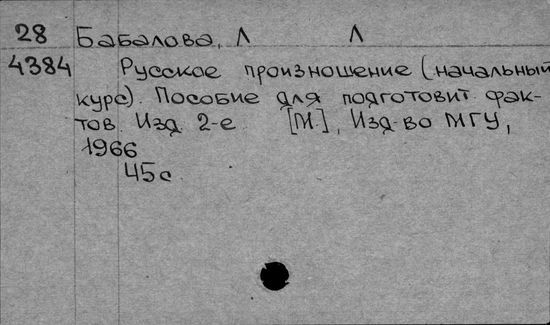 28 Бабалова, Л Л
4384 Русское произношение (начальный
курс). Пособие для подготовит. фак-
тов. Изд. 2-е [М.], Изд-во МГУ,
1966
45 с